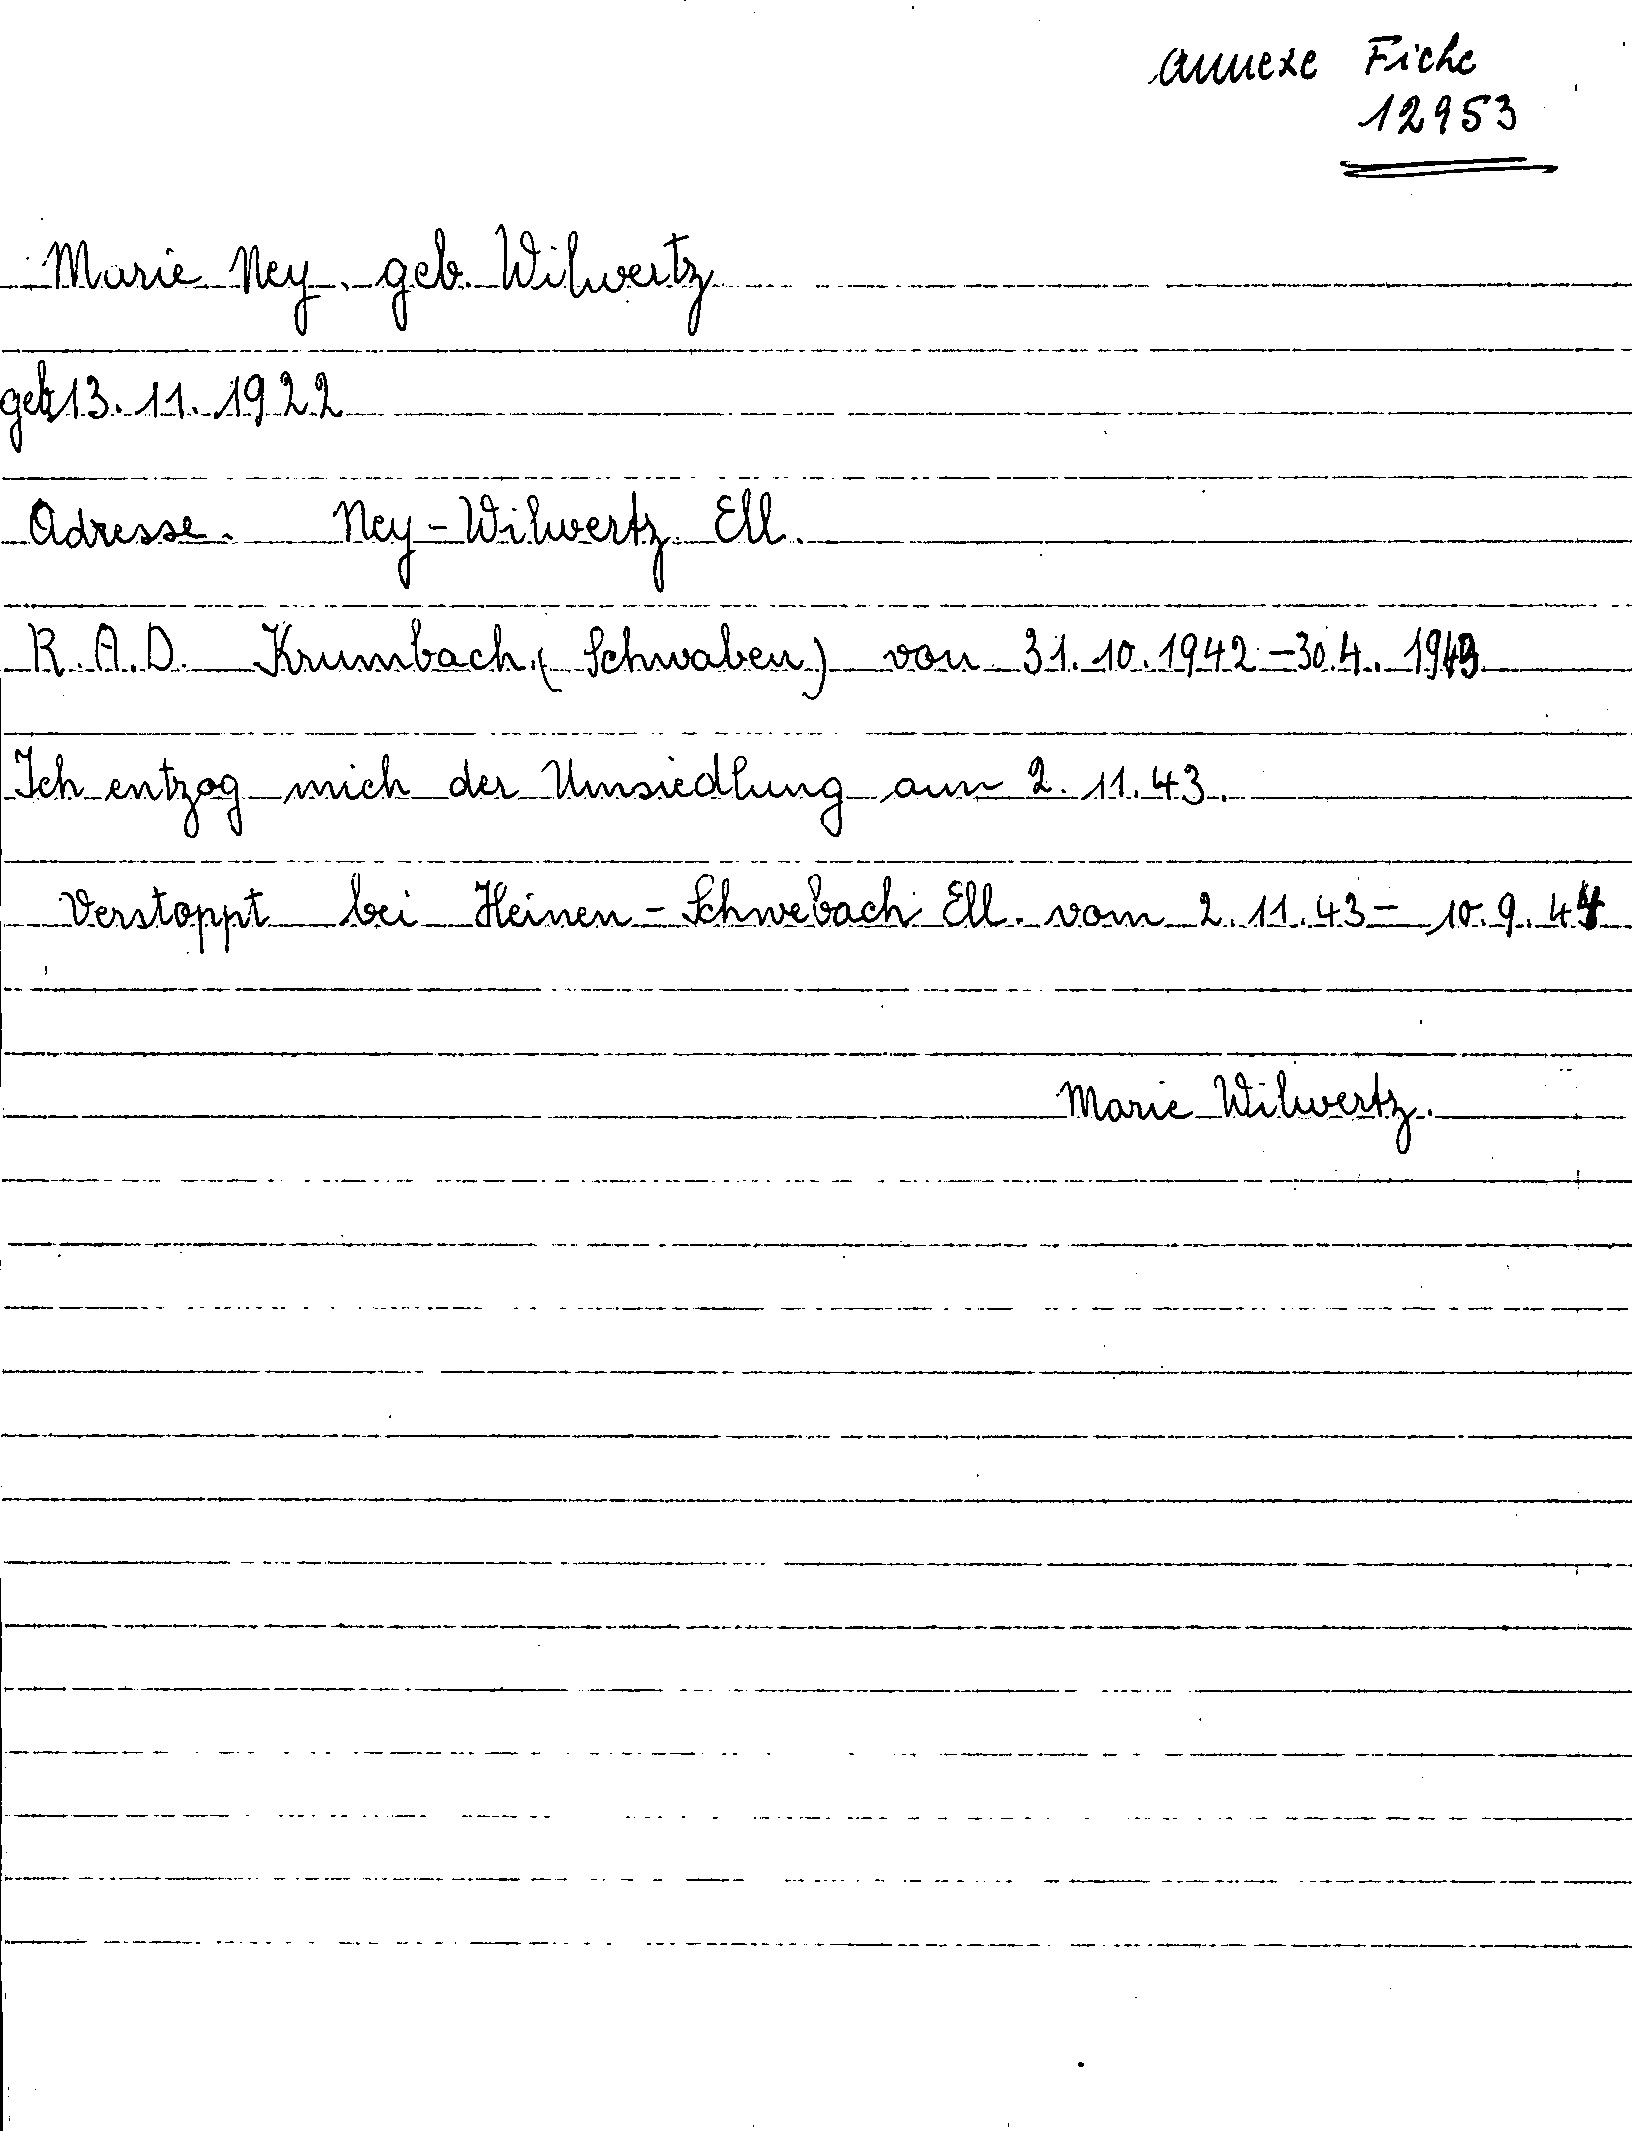 annexe Fiche
12953
Marie Ney. geb. Wilwertz
geb 13. 11. 1922
Adresse. Ney-Wilwertz Ell.
R.A.D. Krumbach (Schwaben) von 31.10.1942 - 30.4. 1943
Ich entzog mich der Umsiedlung am 2. 11. 43.
Verstoppt bei Heinen-Schwebach Ell. vom 2.11.43 - 10.9.44
Marie Wilwertz.